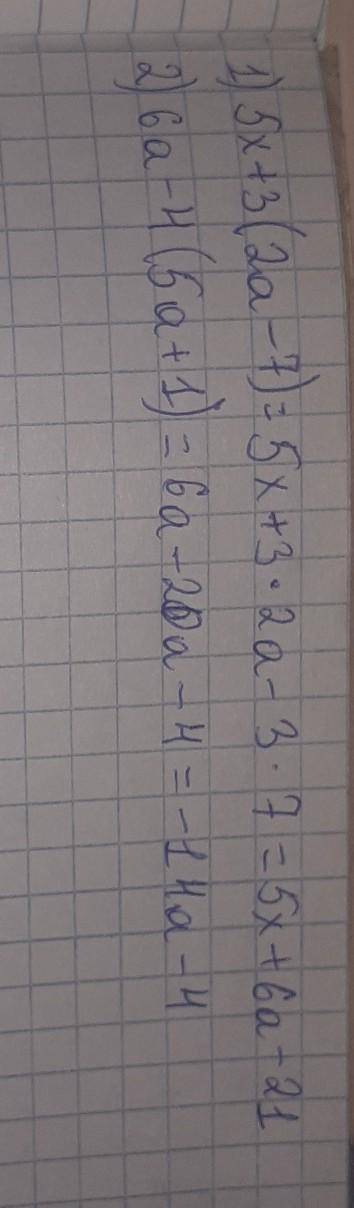 1) 5x+3(2a-7)=5x+3·2a-3·7=5x+6a-21
2) 6a-4(5a+1)=6a-20a-4=-14a-4